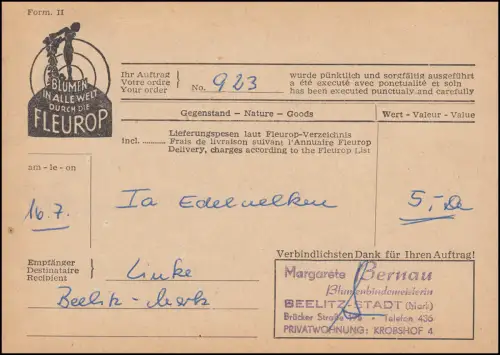 Form. II
BLUMEN
IN ALLE WELT
DURCH DIE
FLEUROP
Ihr Auftrag
Votre ordre
Your order
No. 923
wurde pünktlich und sorgfältig ausgeführt
a été executé avec ponctualité et soin
has been executed punctualy and carefully
Gegenstand — Nature — Goods
Wert - Valeur - Value
incl. ..........
Lieferungspesen laut Fleurop-Verzeichnis
Frais de livraison suivant l'Annuaire Fleurop
Delivery, charges according to the Fleurop List
am - le - on
16.7.
Ia Edelnelken
5,-
Verbindlichsten Dank für Ihren Auftrag!
Empfänger
Destinataire
Recipient
Linke
Beelitz-Mark
Margarete Bernau
Blumenbindemeisterin
BEELITZ-STADT (Mark)
Brücker Straße • Telefon 436
PRIVATWOHNUNG: KROBSHOF 4